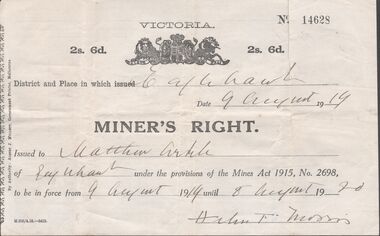 VICTORIA.
No 14628
2s. 6d. 2s. 6d.
District and Place in which issued Eaglehawk
Date 9 August 1919
MINER'S RIGHT.
Issued to Matthew
of Eaglehawk under the provisions of the Mines Act 1915, No. 2698,
to be in force from 9 August 1919 until 8 August 1920
Morris